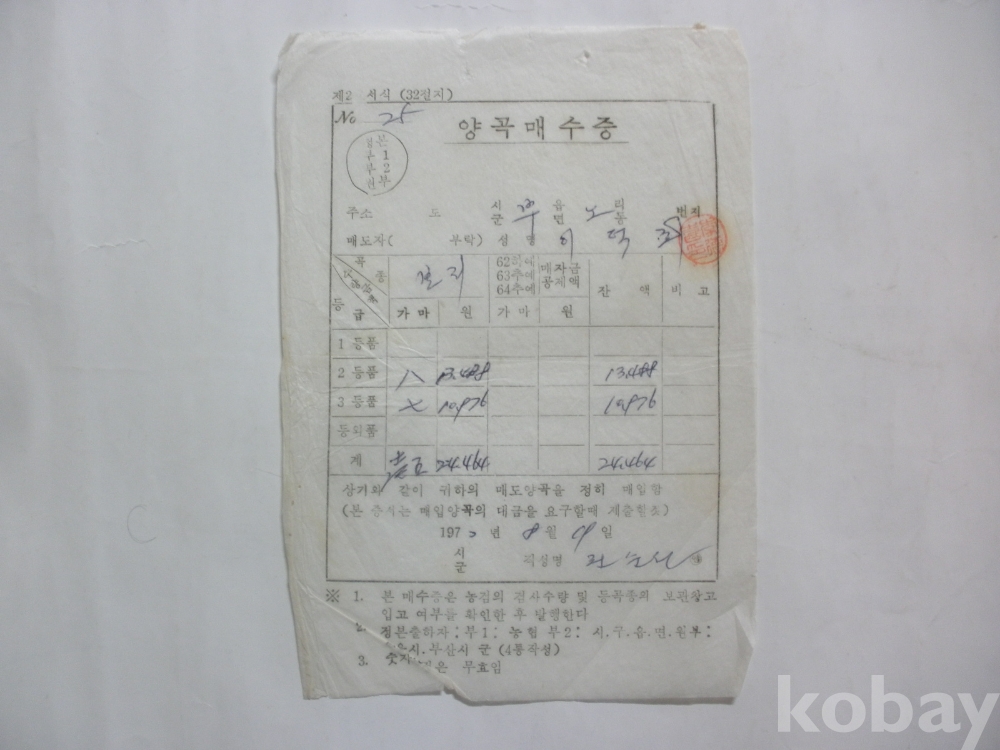 제2 서식 (32절지)
No 25
양곡매수증
정본
부 1
부 2
원부
주소 도 시군 읍면 노 리통 번지
매도자( 부락) 성명 이
곡종 62하예 63추예 64추예 매자금공제액 잔액 비고
등급 가마 원 가마 원
1 등품
2 등품 八 13.488 13.488
3 등품 七 10,976 10,976
등외품
계 24.464 24.464
상기와 같이 귀하의 매도양곡을 정히 매입함
(본 증서는 매입양곡의 대금을 요구할때 제출할것)
197 년 8 월 일
시군 직성명
※ 1. 본 매수증은 농검의 검사수량 및 등곡종의 보관창고
입고 여부를 확인한 후 발행한다
2. 정본출하자; 부1; 농협 부2; 시.구.읍.면.원부:
시.부산시 군 (4통작성)
3. 숫자 은 무효임
kobay